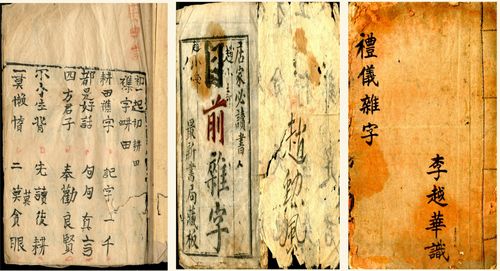 耕田
襍字 畊田
耕田襍字 記字一千
都是好話 句句真言
四方君子 奉勸良賢
先讀後耕
一莫懶惰 二莫貪眼
居家必讀書
目前雜字
最新書局藏板
趙
禮儀雜字
李越華識